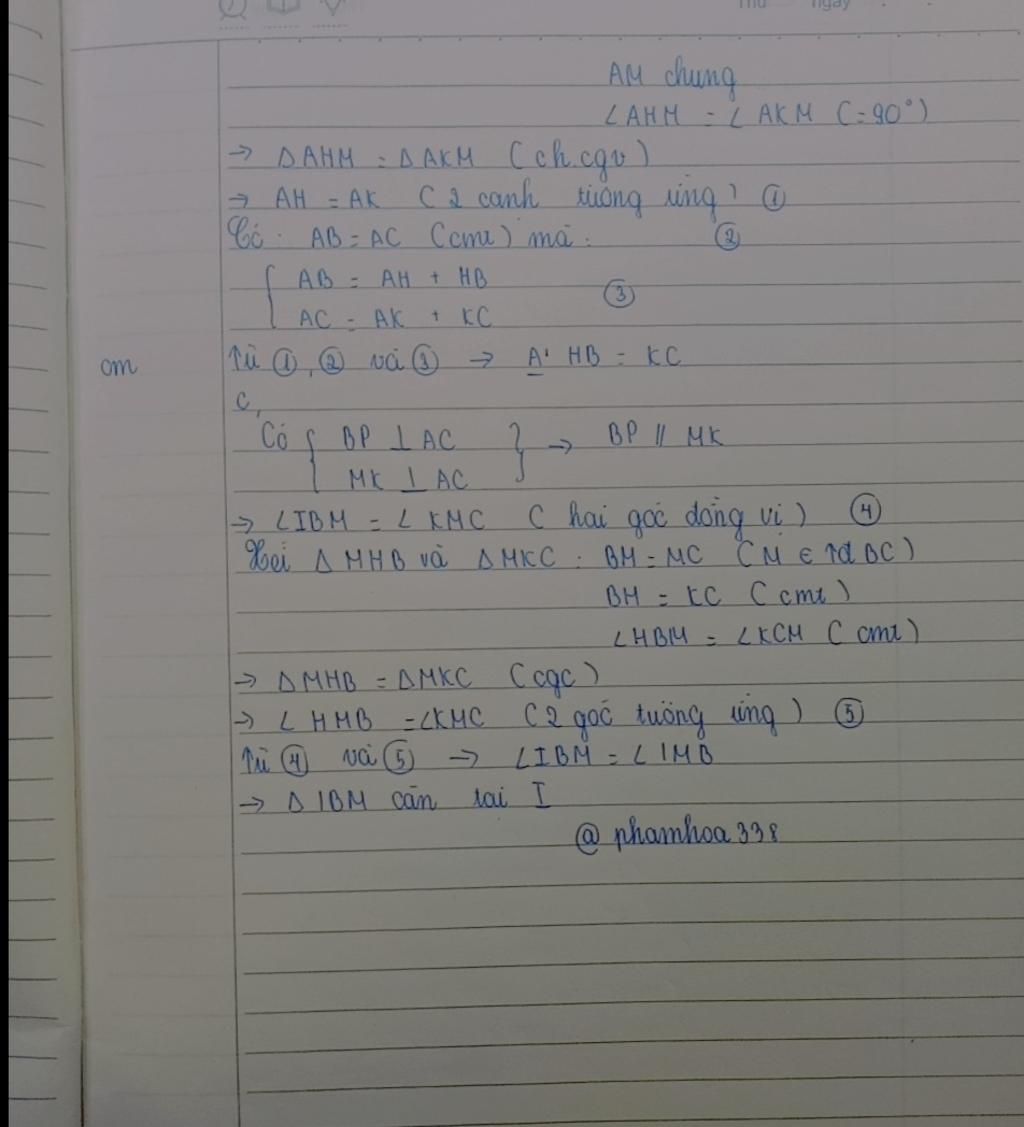 Thứ ngày
AM chung
∠AHM = ∠AKM (=90°)
→ ΔAHM = ΔAKM (ch.cgv)
→ AH = AK (2 cạnh tương ứng) ①
Có: AB = AC (cmt) mà: ②
{ AB = AH + HB
AC = AK + KC ③
cm Từ ①, ② và ③ → A' HB = KC
c,
Có { BP ⊥ AC } → BP // MK
MK ⊥ AC
→ ∠IBM = ∠KMC (hai góc đồng vị) ④
Xét ΔMHB và ΔMKC: BM = MC (M ∈ tđ BC)
BH = KC (cmt)
∠HBM = ∠KCM (cmt)
→ ΔMHB = ΔMKC (cgc)
→ ∠HMB = ∠KMC (2 góc tương ứng) ⑤
Từ ④ và ⑤ → ∠IBM = ∠IMB
→ ΔIBM cân tại I
@phamhoa338